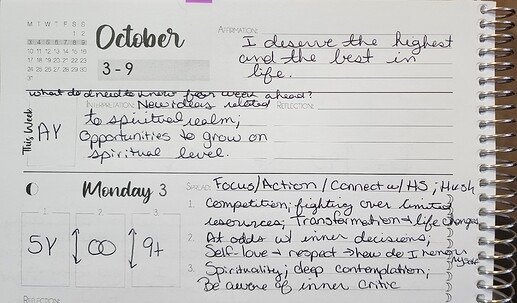 M T W T F S S
1 2
3 4 5 6 7 8 9
10 11 12 13 14 15 16
17 18 19 20 21 22 23
24 25 26 27 28 29 30
31
October
3 - 9
AFFIRMATION:
I deserve the highest
and the best in
life.
what do I need to know for week ahead?
This Week
AY
INTERPRETATION: New ideas related
to spiritual realm;
Opportunities to grow on
spiritual level.
REFLECTION:
Monday 3
SPREAD: Focus/Action/Connect w/ HS; Hush
1. 2. 3.
5Y
9+
1. Competition; fighting over limited
resources; Transformation + life changes
2. At odds w/ inner decisions;
Self love + respect → how do I honor
myself
3. Spirituality; deep contemplation;
Be aware of inner critic
REFLECTION: